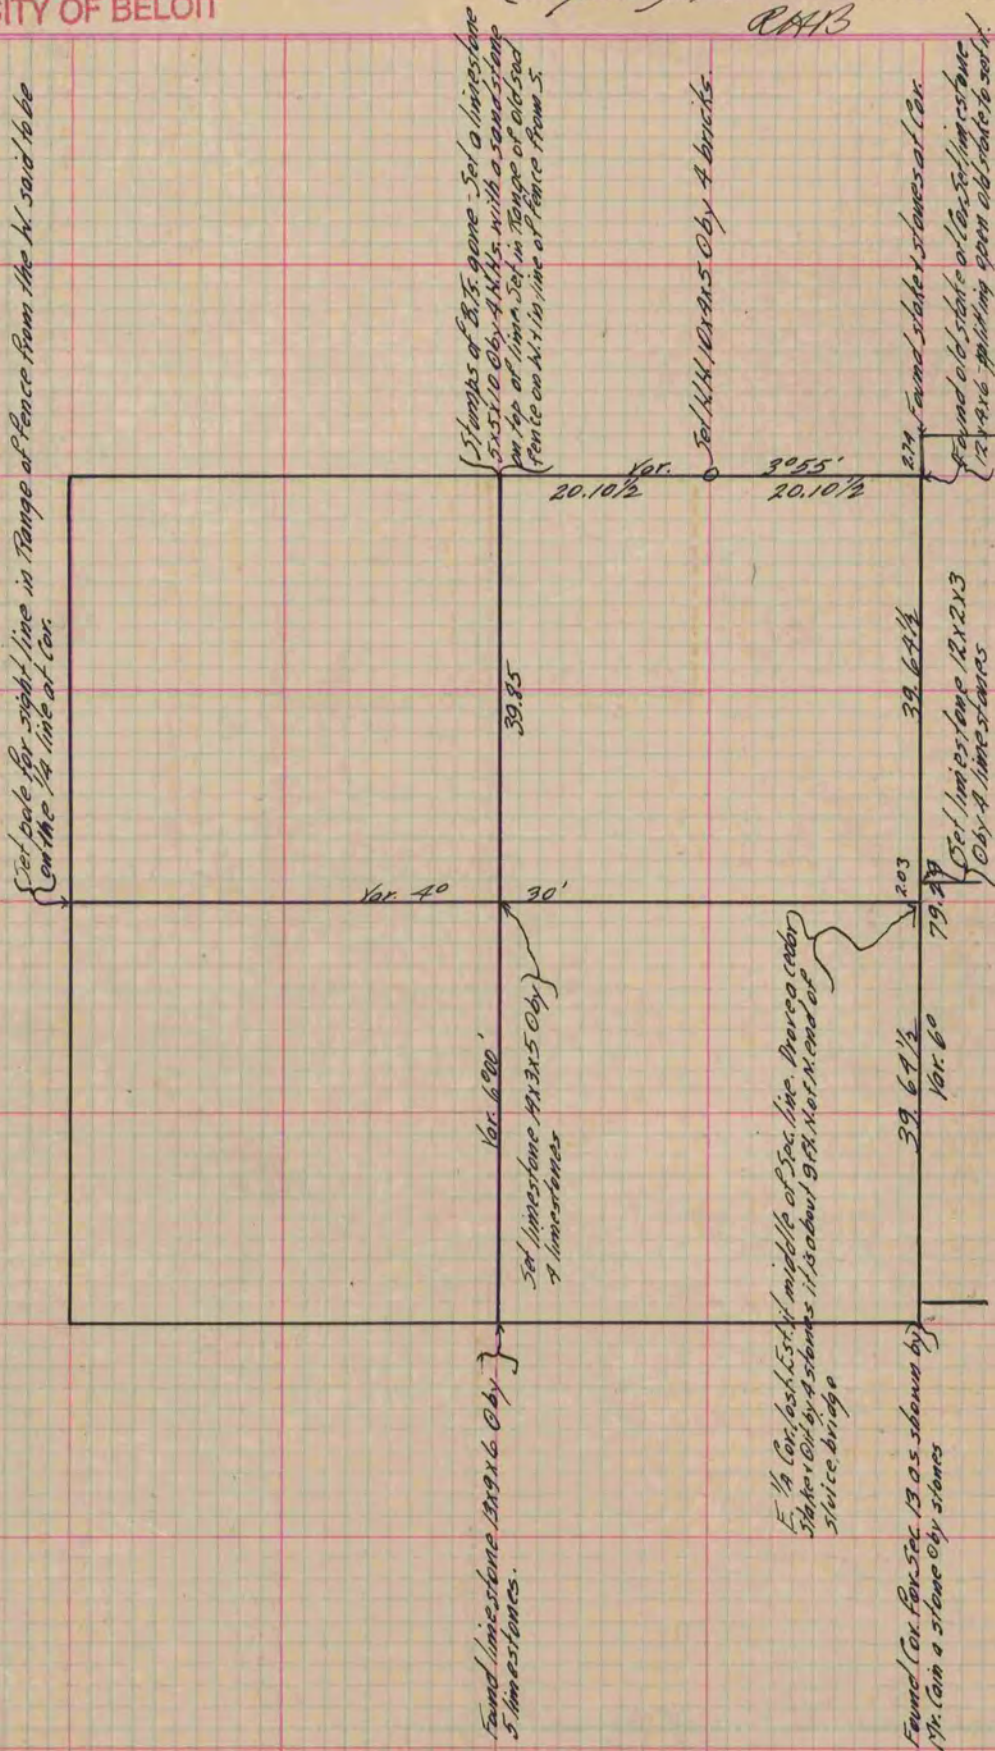 CITY OF BELOIT
RHB
Set pole for sight line in Range of fence from the W. said to be
on the 1/4 line at Cor.
Stumps of B.Ts. gone - Set a limestone
5x5x10 ⊙ by 4 N.Hs. with a sandstone
on top of lime. Set in Range of old sod
fence on W. & in line of fence from S.
Var.
20.10 1/2
3°55'
20.10 1/2
Set N.H. 10x4x5 ⊙ by 4 bricks.
2.74
Found stake & stones at Cor.
Found old stake at Cor. Set limestone
12x4x6 splitting open old stake to set it.
39.85
39.64 1/2
Set limestone 12x2x3
⊙ by 4 limestones
Var. 4°
30'
2.03
79.29
Var. 6°00'
Set limestone 14x3x5 ⊙ by
4 limestones
E 1/4 Cor. lost. Est. it middle of Sec. line. Drove a cedar
stake & ⊙ it by 4 stones it is about 9 ft. N. of N. end of
sluice bridge
39.64 1/2
Var. 6°
Found limestone 13x9x6 ⊙ by
5 limestones.
Found Cor. for Sec. 13 as shown by
Mr. Cain a stone ⊙ by stones